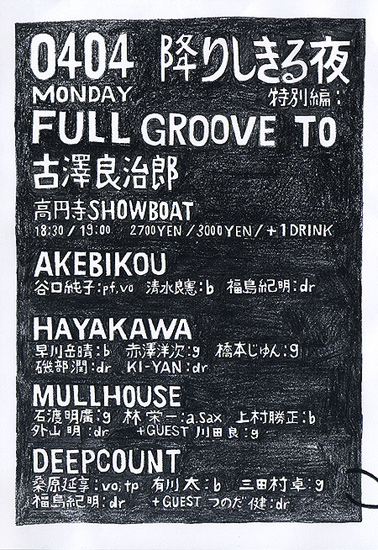 0404 降りしきる夜
MONDAY 特別編:
FULL GROOVE TO
古澤良治郎
高円寺SHOWBOAT
18:30/19:00 2700YEN/3000YEN/+1DRINK
AKEBIKOU
谷口純子:pf,vo 清水良憲:b 福島紀明:dr
HAYAKAWA
早川岳晴:b 赤澤洋次:g 橋本じゅん:g
磯部潤:dr KI-YAN:dr
MULLHOUSE
石渡明廣:g 林栄一:a.sax 上村勝正:b
外山明:dr +GUEST 川田良:g
DEEPCOUNT
桑原延享:vo,tp 有川太:b 三田村卓:g
福島紀明:dr +GUEST つのだ健:dr